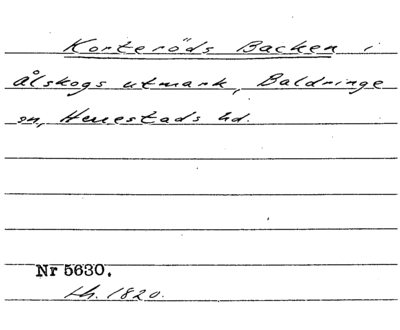 Korteröds Backen i
Ålskogs utmark, Baldringe
sn, Herrestads hd.
Nr 5630.
Lh. 1820.